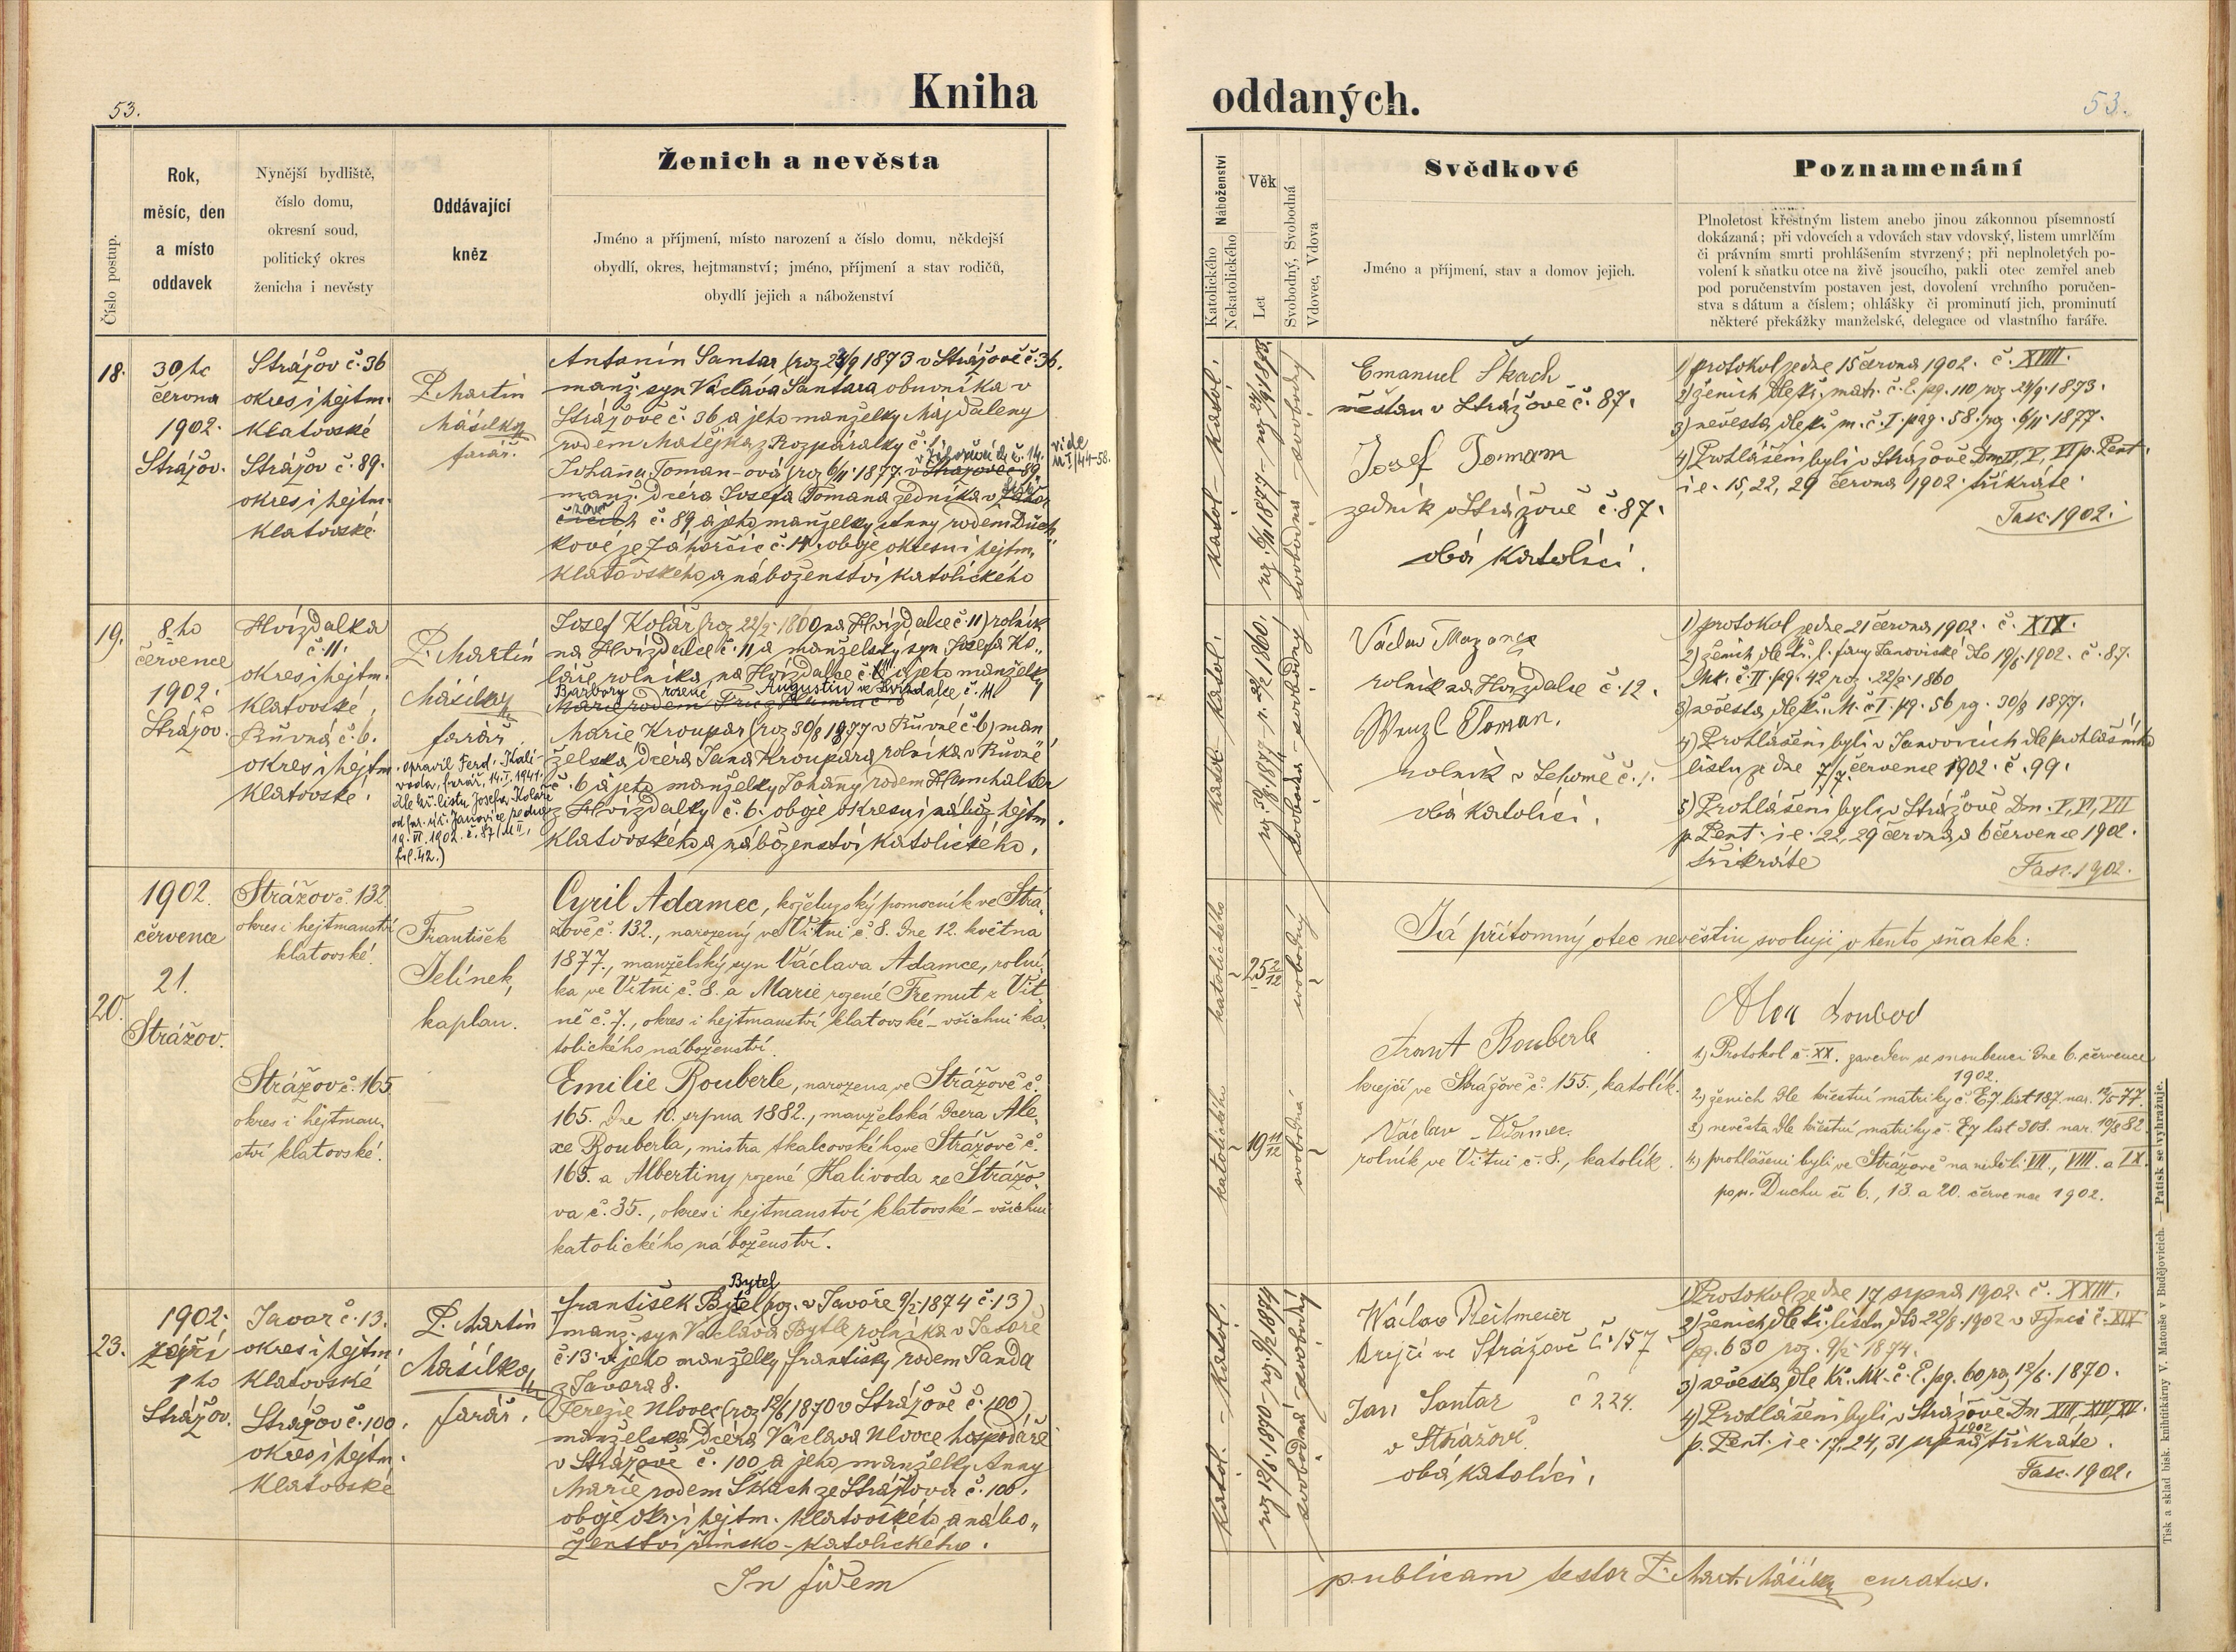 53.
Kniha
oddaných.
53.
Číslo postup.
Rok,
měsíc, den
a místo
oddavek
Nynější bydliště,
číslo domu,
okresní soud,
politický okres
ženicha i nevěsty
Oddávající
kněz
Ženich a nevěsta
Jméno a příjmení, místo narození a číslo domu, někdejší
obydlí, okres, hejtmanství; jméno, příjmení a stav rodičů,
obydlí jejich a náboženství
Náboženství
Katolického
Nekatolického
Věk
Let
Svobodný, Svobodná
Vdovec, Vdova
Svědkové
Jméno a příjmení, stav a domov jejich.
Poznamenání
Plnoletost křestným listem anebo jinou zákonnou písemností
dokázaná; při vdovcích a vdovách stav vdovský, listem umrlčím
či právním smrti prohlášením stvrzený; při neplnoletých po-
volení k sňatku otce na živě jsoucího, pakli otec zemřel aneb
pod poručenstvím postaven jest, dovolení vrchního poručen-
stva s dátum a číslem; ohlášky či prominutí jich, prominutí
některé překážky manželské, delegace od vlastního faráře.
18.
30ho
června
1902.
Strážov.
Strážov č. 36
okres i hejtm.
Klatovské
Strážov č. 89.
okres i hejtm.
Klatovské
P. Martin
Másílko
farář.
Antonín Santar (roz 24/9 1873 v Strážově č. 36.
manž. syn Václava Santara obuvníka v
Strážově č. 36 a jeho manželky Majdaleny
rodem Matějka z Rozpáralky č. 1.
v Záhorčicích č. 14.
vide
M I/44-58.
Johanna Toman-ová (roz 6/11 1877 v Strážově č. 89
manž. dcéra Josefa Tomana zedníka v
č. 89 a jeho manželky Anny rodem Duch
kové ze Záhorčic č. 14. oboje okresu i hejtm.
Klatovského a náboženství katolického
katol. - katol.
roz. 6/11 1877 - roz 24/9 1873.
svobodná - svobodný
Emanuel Škach
měštan v Strážově č. 87.
Josef Tomam
zedník v Strážově č. 87.
obá katolíci.
1) protokol ze dne 15 června 1902. č. XVIII.
2) ženich dle kř. matr. č. E. pg. 110 roz 24/9 1873.
3) nevěsta dle kř. m. č. I. pag. 58. roz. 6/11 1877.
4) Prohlášeni byli v Strážově Dm IV, V, VI p. Pent.
i e. 15, 22, 29 června 1902. tříkráte.
Fasc. 1902.
19.
8ho
července
1902.
Strážov.
Hvízdalka
č. 11.
okres i hejtm.
Klatovské,
Růvná č. 6.
okres i hejtm.
Klatovské.
P. Martin
Másílko
farář.
Opravil Ferd. Kali-
voda, farář, 14. I. 1941.
dle kř. listu Josefa Koláře
od far. úř. Janovice ze dne
19. VI. 1902. č. 87/M II,
fol. 42.)
Josef Kolář (roz 22/2 1860 na Hvízdalce č 11) rolník
na Hvízdalce č. 11 a manželský syn Josefa Ko„
láře rolníka na Hvízdalce č. 11 a jeho manželky
Barbory rozené Augustin ze Hvízdalce, č. 11.
Marie Kroupar (roz 30/8 1877 v Růvné č 6) man
želská dcéra Jana Kroupara rolníka v Růvné
č. 6 a jeho manželky Johanny rodem Hanchalder
z Hvízdalky č. 6. oboje okresu i nábož hejtm.
Klatovského a náboženství katolického.
katol. - katol.
roz. 30/8 1877 - r. 22/2 1860.
svobodná - svobodný
Václav Mazanec
rolník na Hvízdalce č. 12.
Wenzl Toman.
rolník v Lehomě č. 1.
obá katolíci.
1) protokol ze dne 21 června 1902. č. XIX.
2) ženich dle kř. l. fary Janovické dto 19/6 1902. č. 87.
Mk. č. II pg. 42 roz. 22/2 1860
3) nevěsta dle kř. M. č I. pg. 56 rz. 30/8 1877.
4) Prohlášeni byli v Janovicích dle prohlášního
listu ze dne 7/7 července 1902. č. 99.
5) Prohlášeni byli v Strážově Dom. V, VI, VII
p. Pent. i e. 22, 29 června, a 6 července 1902.
tříkráte
Fasc. 1902.
20.
1902.
července
21.
Strážov.
Strážov č. 132.
okres i hejtmanství
klatovské.
Strážov č. 165
okres i hejtman-
ství klatovské.
František
Jelínek,
kaplan.
Cyril Adamec, koželugský pomocník ve Strá-
žově č. 132., narozený ve Vítni č. 8. dne 12. května
1877., manželský syn Václava Adamce, rolní-
ka ve Vítni č. 8. a Marie rozené Tremut z Vít-
ně č. 7., okres i hejtmanství klatovské – všichni ka-
tolického náboženství.
Emilie Rouberle, narozena ve Strážově č.
165. dne 10. srpna 1882., manželská dcera Ale-
xe Rouberla, mistra tkalcovského ve Strážově č.
165. a Albertiny rozené Kalivoda ze Strážo-
va č. 35., okres i hejtmanství klatovské – všichni
katolického náboženství.
katolického
katolického
25 2/12
19 11/12
svobodný
svobodná
Frant Rouberle
krejčí ve Strážově č. 155., katolík.
Václav Adamec.
rolník ve Vítni č. 8., katolík.
Já přítomný otec nevěstin svoluji v tento sňatek:
1.) Protokol č. XX. zaveden se snoubenci dne 6. července
1902.
2.) ženich dle křestní matriky č. E7 list 187. nar. 12/5 77.
3.) nevěsta dle křestní matriky č. E7 list 308. nar. 10/8 82
4.) prohlášeni byli ve Strážově na neděli VII., VIII. a IX.
po sv. Duchu či 6., 13. a 20. července 1902.
23.
1902.
Září
1ho
Strážov.
Javor č. 13.
okres i hejtm.
Klatovské
Strážov č. 100.
okres i hejtm.
Klatovské
P. Martin
Másílko
farář.
Bytel
František Bytel (roz. v Javoře 9/2 1874 č. 13)
manž. syn Václava Bytle rolníka v Javoře
č. 13 a jeho manželky Františky rodem Janda
z Javora 8.
Terezie Ulovec (roz 12/6 1870 v Strážově č. 100)
manželská dcera Václava Ulovce hospodáře
v Strážově č. 100 a jeho manželky Anny
Marie rodem Škach ze Strážova č. 100.
oboje okr. i hejtm. Klatovského a nábo„
ženství římsko-katolického.
katol. - katol.
roz 12/6 1870 - roz. 9/2 1874
svobodná - svobodný
Wáclav Reitmeier
krejčí ve Strážově č. 157
Jan Santar č 224.
v Strážově
obá katolíci.
1) Protokol ze dne 17 srpna 1902. č. XXIII.
2) ženich dle kř. listu dto 22/8 1902 v Týnci č. XIV
pg. 630 roz. 9/2 1874.
3) nevěsta dle Kř. Mk. č. E. pg. 60 roz 12/6 1870.
4) Prohlášeni byli v Strážově Dm XIII, XIV, XV.
p. Pent. i e. 17, 24, 31 srpna 1902 tříkráte.
Fasc. 1902.
In fidem
publicam testor P. Mart. Másílko curatus.
Tisk a sklad bisk. knihtiskárny V. Matouše v Budějovicích. — Patisk se vyhražuje.